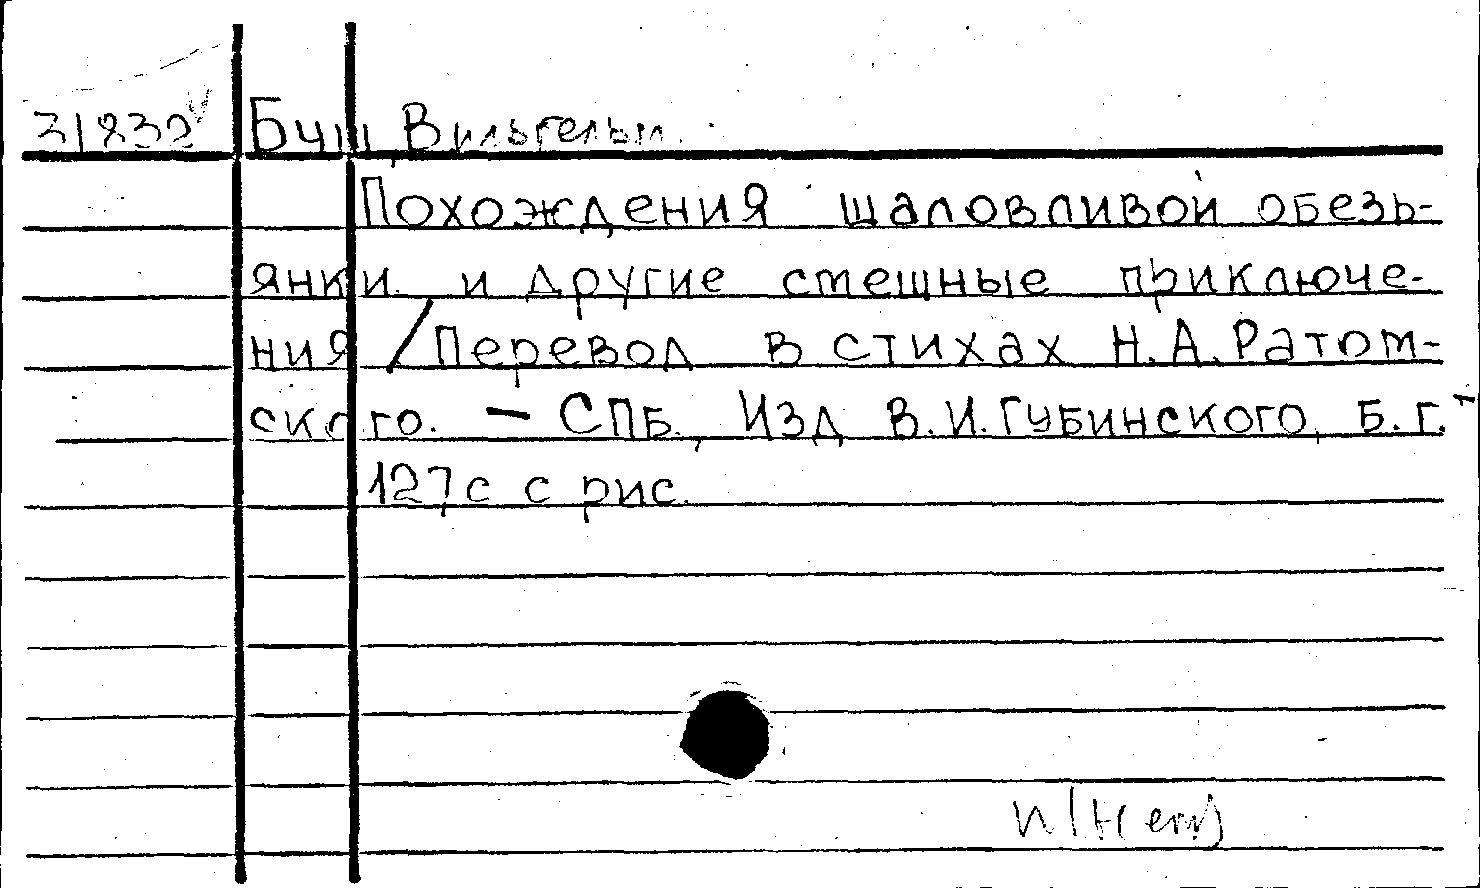 31832 Буш, Вильгельм.
Похождения шаловливой обезь-
янки и другие смешные приключе-
ния / Перевод в стихах Н.А.Ратом-
ского. — СПБ., Изд В.И.Губинского, Б.г.
127с с рис.